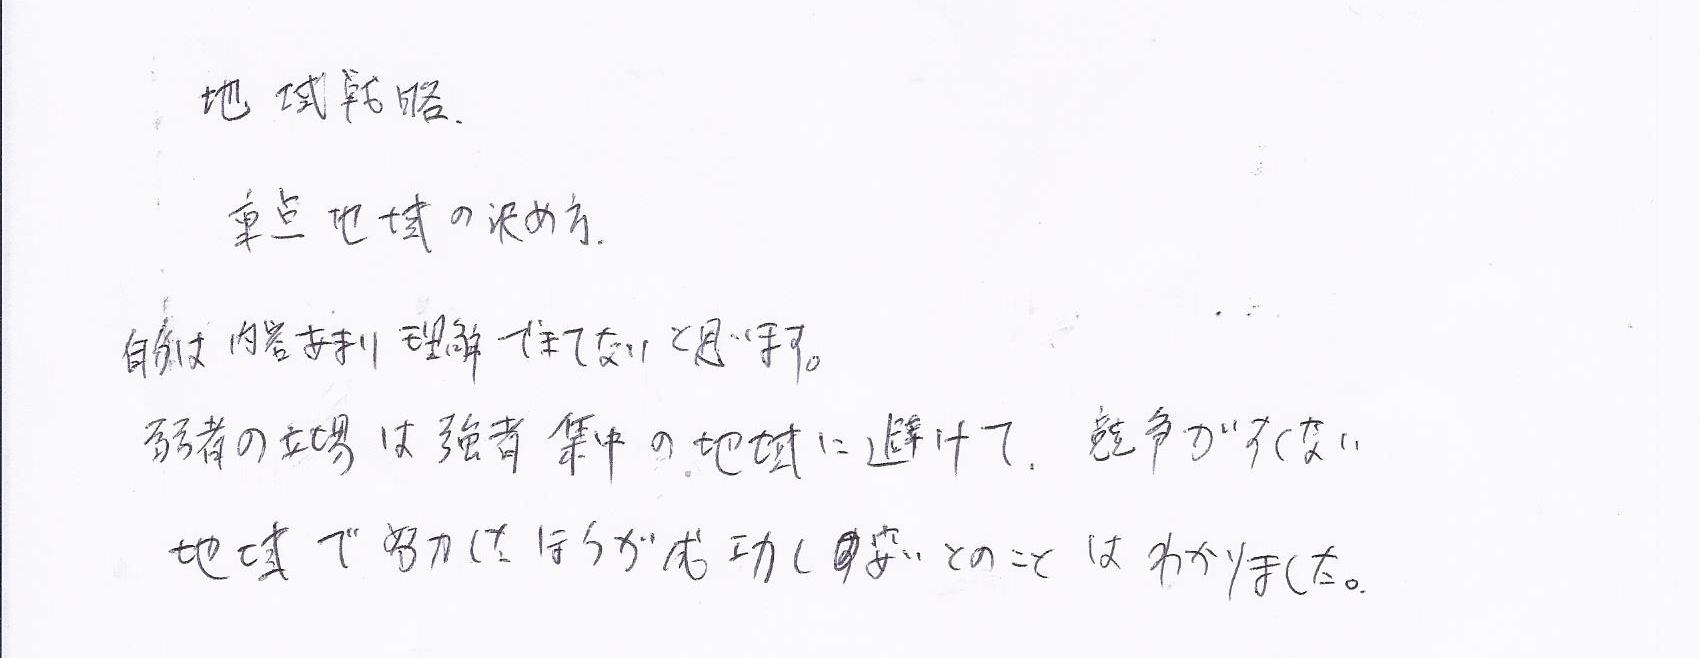 地域戦略.
重点地域の決め方.
自分は内容あまり理解できてないと思います。
弱者の立場は強者集中の地域に避けて、競争がすくない
地域で努力したほうが成功し安いとのことはわかりました。